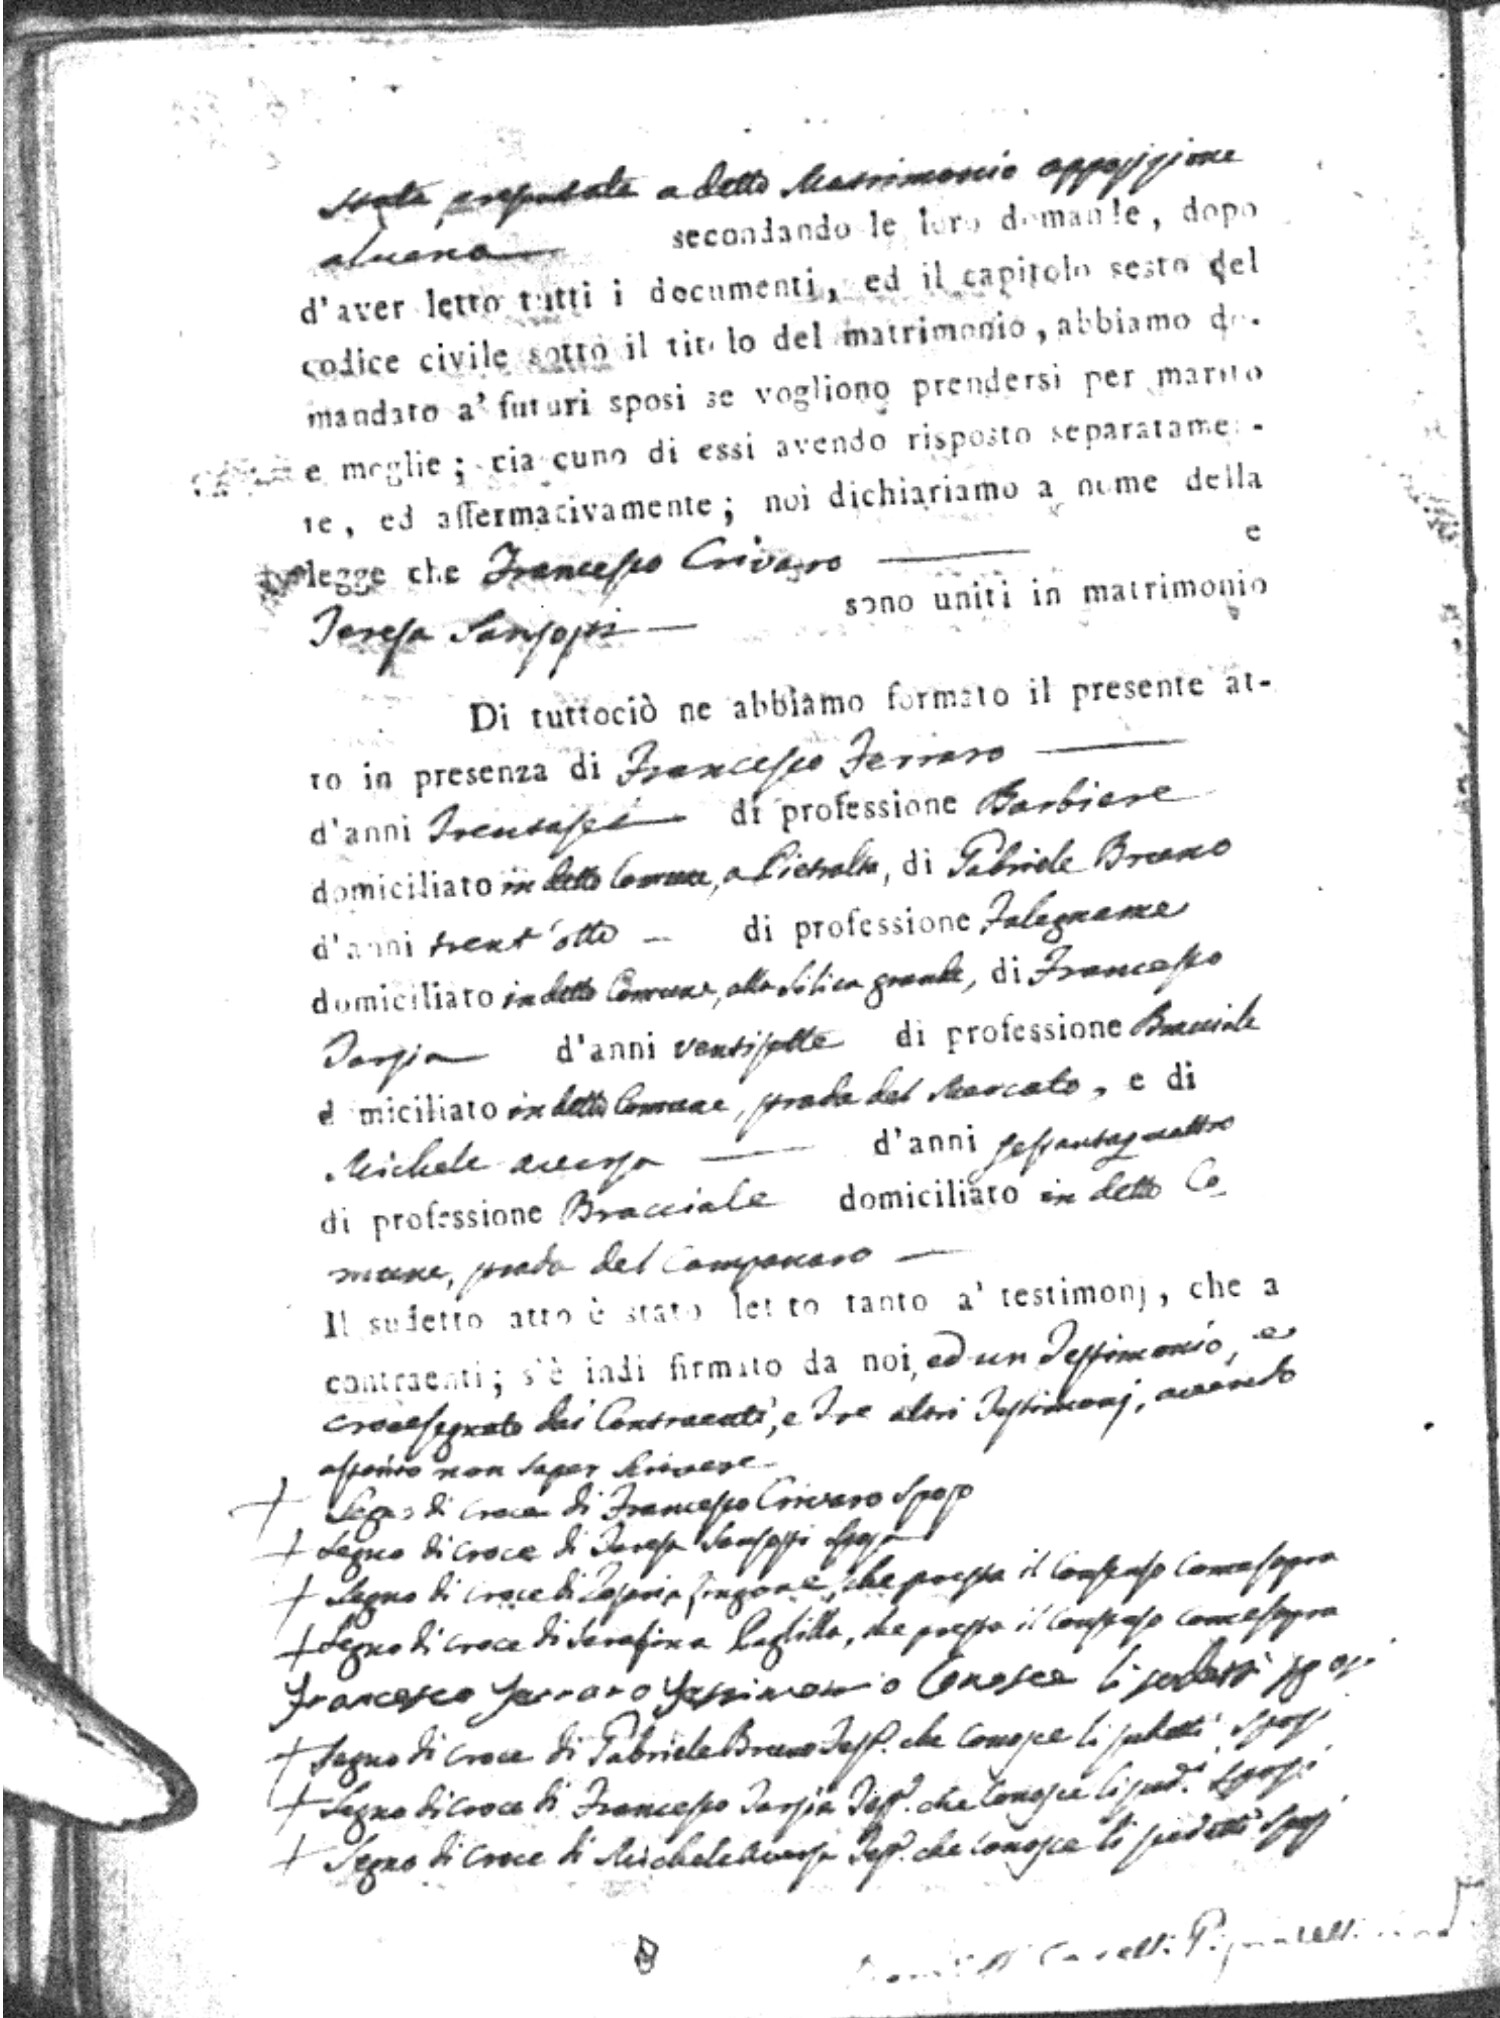 stata presentata a detto Matrimonio opposizione
alcuna secondando le loro domande, dopo
d'aver letto tutti i documenti, ed il capitolo sesto del
codice civile sotto il titolo del matrimonio, abbiamo do-
mandato a' futuri sposi se vogliono prendersi per marito
e moglie; ciascuno di essi avendo risposto separatamen-
te, ed affermativamente; noi dichiariamo a nome della
legge che Francesco Crivaro e
Teresa Sansoppi sono uniti in matrimonio
Di tuttociò ne abbiamo formato il presente at-
to in presenza di Francesco Ferraro
d'anni Trentasei di professione Barbiere
domiciliato in detto Comune, a Pietralta, di Gabriele Bruno
d'anni trent'otto di professione Falegname
domiciliato in detto Comune, alla Silica grande, di Francesco
Tarsia d'anni ventisette di professione Bracciale
domiciliato in detto Comune, strada del Mercato, e di
Michele Aversa d'anni sessantaquattro
di professione Bracciale domiciliato in detto Co-
mune, strada del Campanaro
Il sudetto atto è stato letto tanto a' testimonj, che a
contraenti; s'è indi firmato da noi, ed un Testimonio, e
crocesegnato dai Contraenti, e Tre altri Testimonj, avendo
asserito non saper scrivere
+ Segno di croce di Francesco Crivaro Sposo
+ Segno di croce di Teresa Sansoppi Sposa
+ Segno di croce di Zingone, che presta il Consenso come sopra
+ Segno di croce di Serafina Paglilla, che presta il Consenso come sopra
Francesco Ferraro Testimonio Conosce li sudetti sposi
+ Segno di croce di Gabriele Bruno Test.º che conosce li sudetti Sposi
+ Segno di croce di Francesco Tarsia Test.º che Conosce li sud.i Sposi
+ Segno di croce di Michele Aversa Test.º che conosce li sudetti Sposi
Caselli Pignatelli